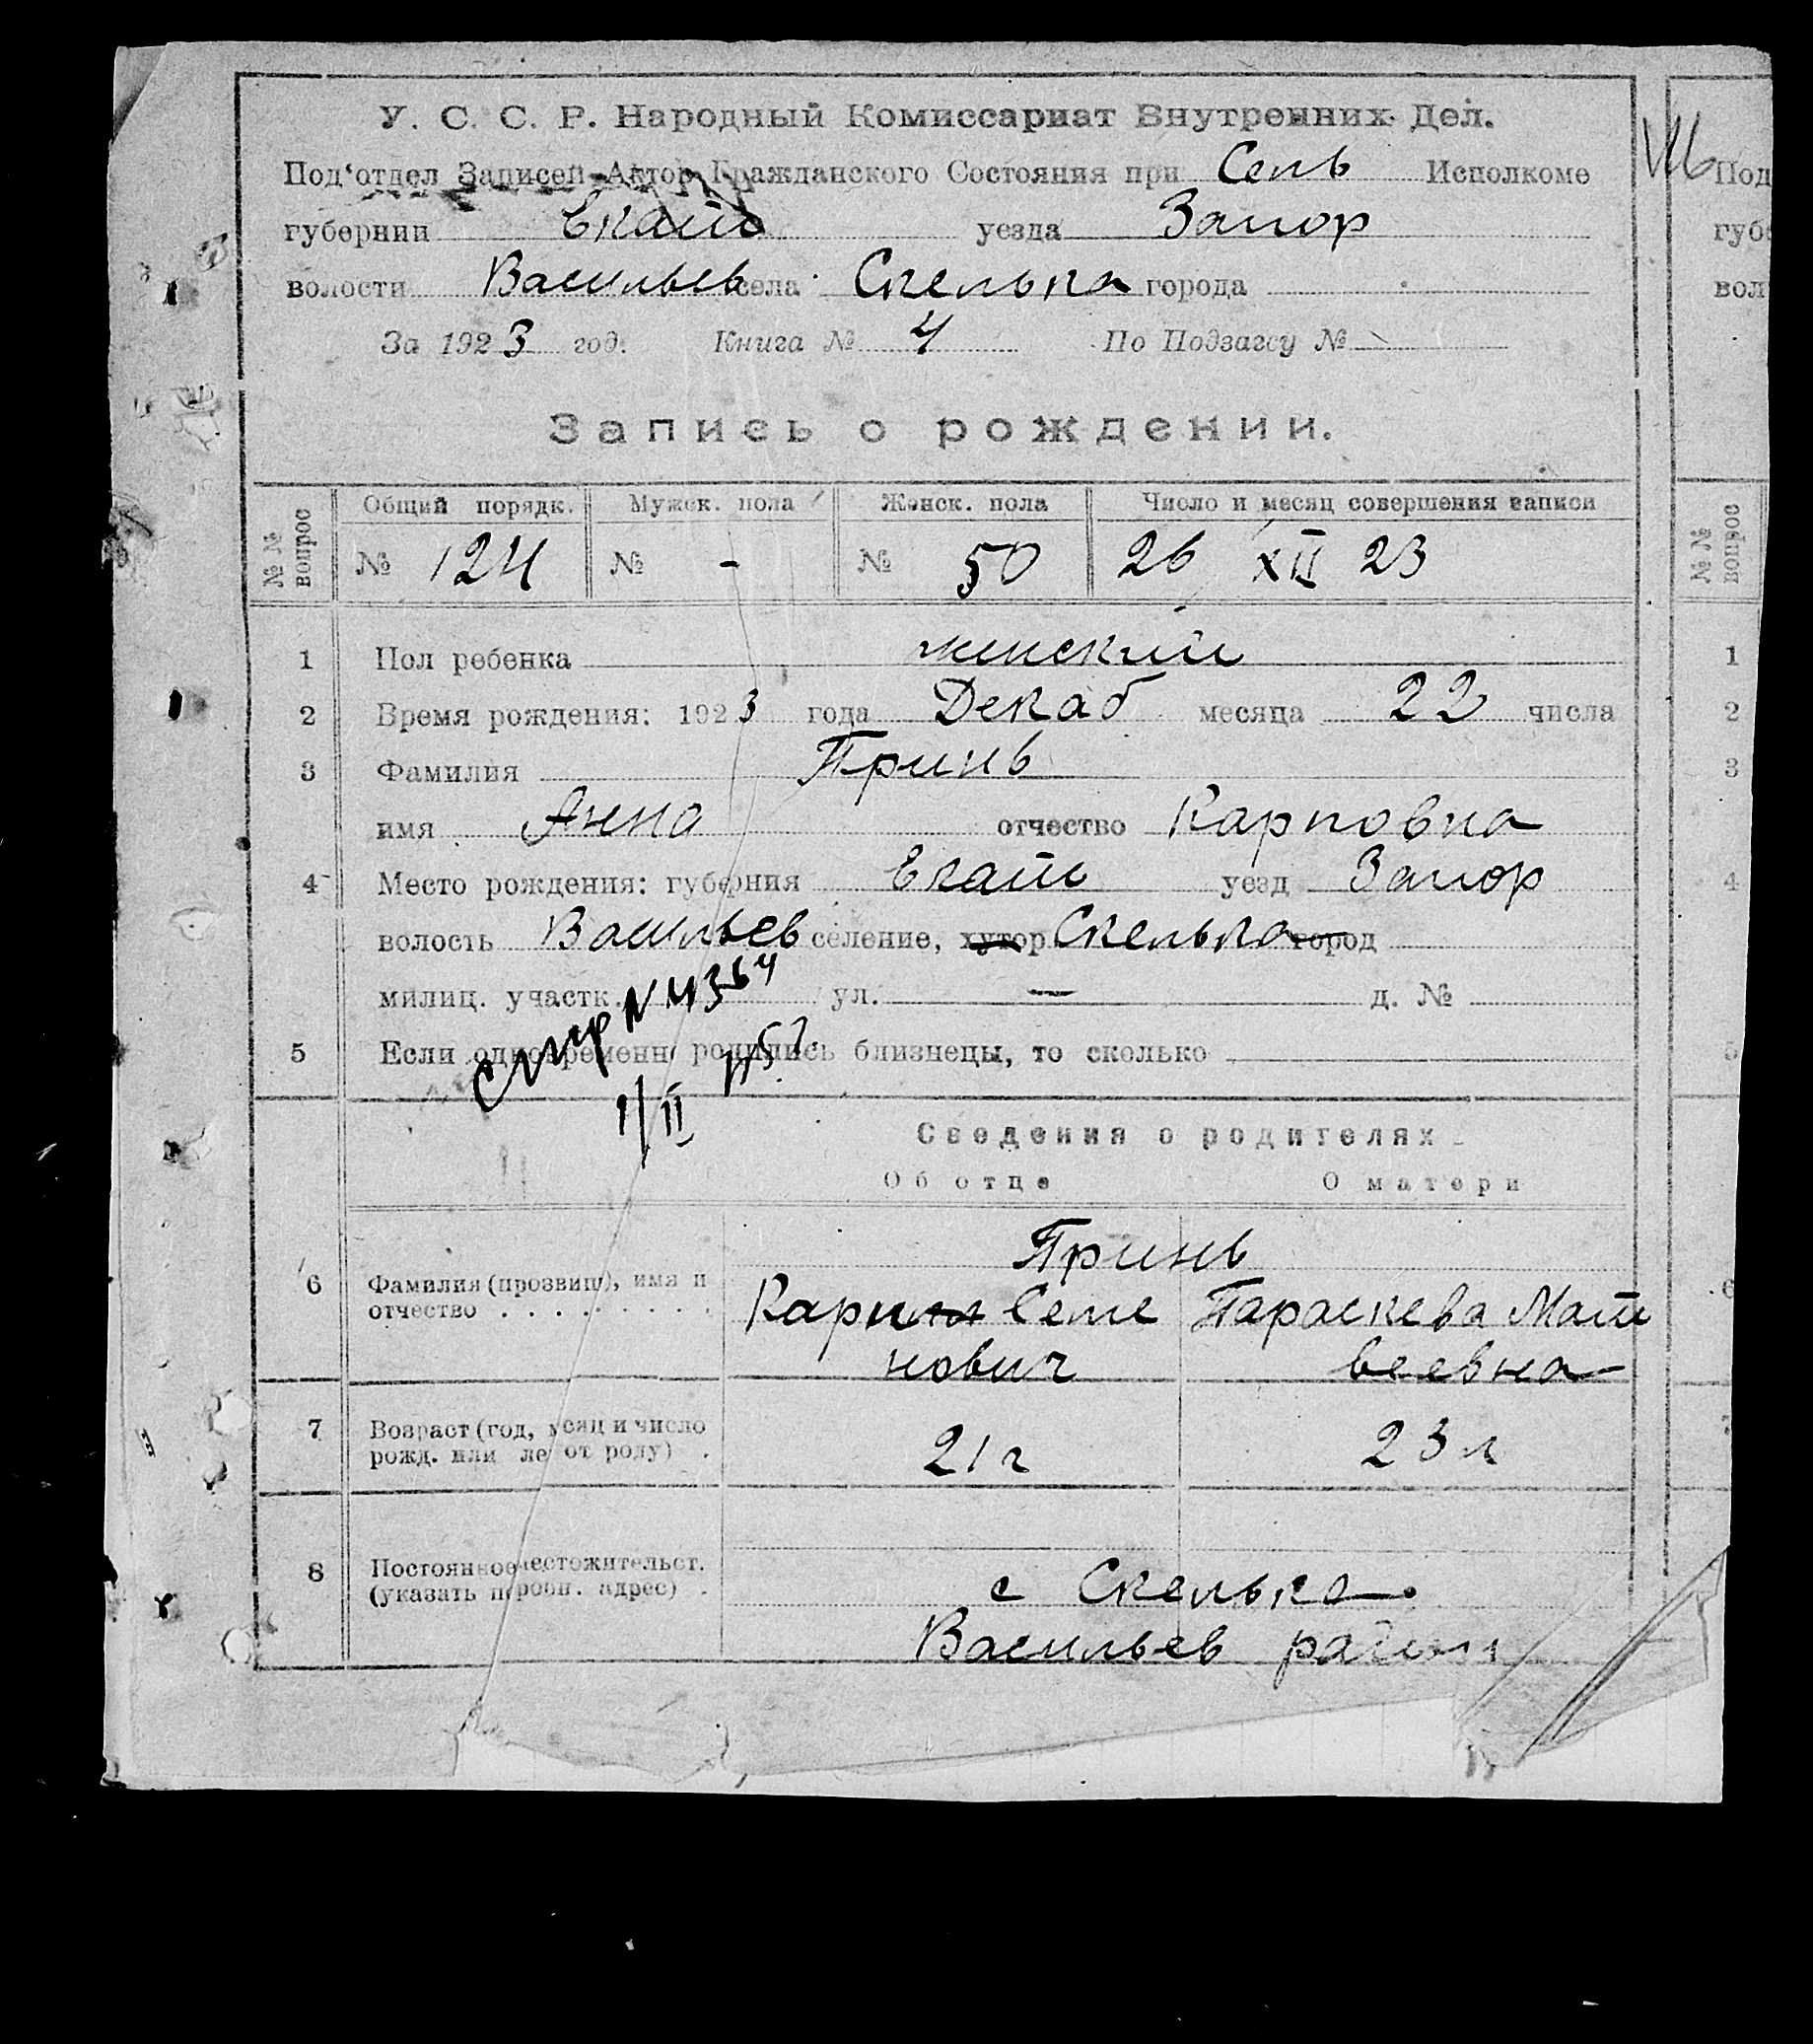 У. С. С. Р. Народный Комиссариат Внутренних Дел.
Под'отдел Записей Актов Гражданского Состояния при Сель Исполкоме
губернии Екат уезда Запор
волости Васильев села Скелька города
За 1923 год. Книга № 4 По Подзагсу №
Запись о рождении.
№№ вопрос
Общий порядк. Мужск. пола Женск. пола Число и месяц совершения записи
№ 124 № - № 50 26 XII 23
1 Пол ребенка женский
2 Время рождения: 1923 года Декаб месяца 22 числа
3 Фамилия Принь
имя Анна отчество Карповна
4 Место рождения: губерния Екат уезд Запор
волость Васильев селение, хутор Скелька город
милиц. участк. ул. — д. №
5 Если одновременно родились близнецы, то сколько
1/II
Сведения о родителях
Об отце О матери
Принь
6 Фамилия (прозвищ), имя и
отчество
Карп Семе
нович
Параскева Мат
веевна
7 Возраст (год, месяц и число
рожд. или лет от роду) .
21 г 23 л
8 Постоянное местожительст.
(указать перв. адрес) .
с Скелька
Васильев район
Под
губе
вол
№№ вопрос
1
2
3
4
5
6